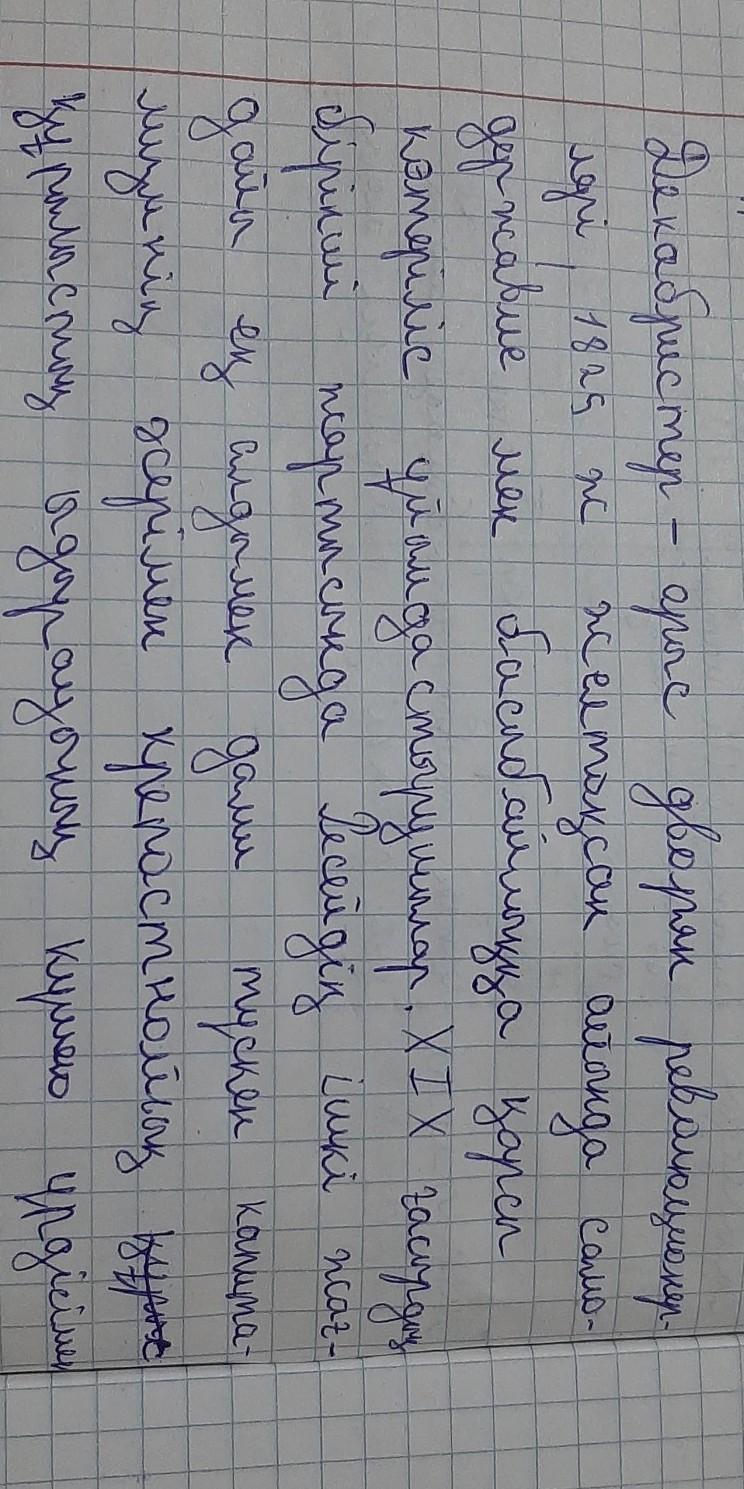 Декабристер - орыс дворян революционер-
лері, 1825 ж желтоқсан айында само-
державие мен басыбайлыққа қарсы
көтеріліс ұйымдастырушылар. XIX ғасырдың
бірінші жартысында Ресейдің ішкі жағ-
дайы ең алдымен дами түскен капита-
лизмнің әсерімен крепостнойлық
құрылыстың ыдырауының күшею үрдісімен